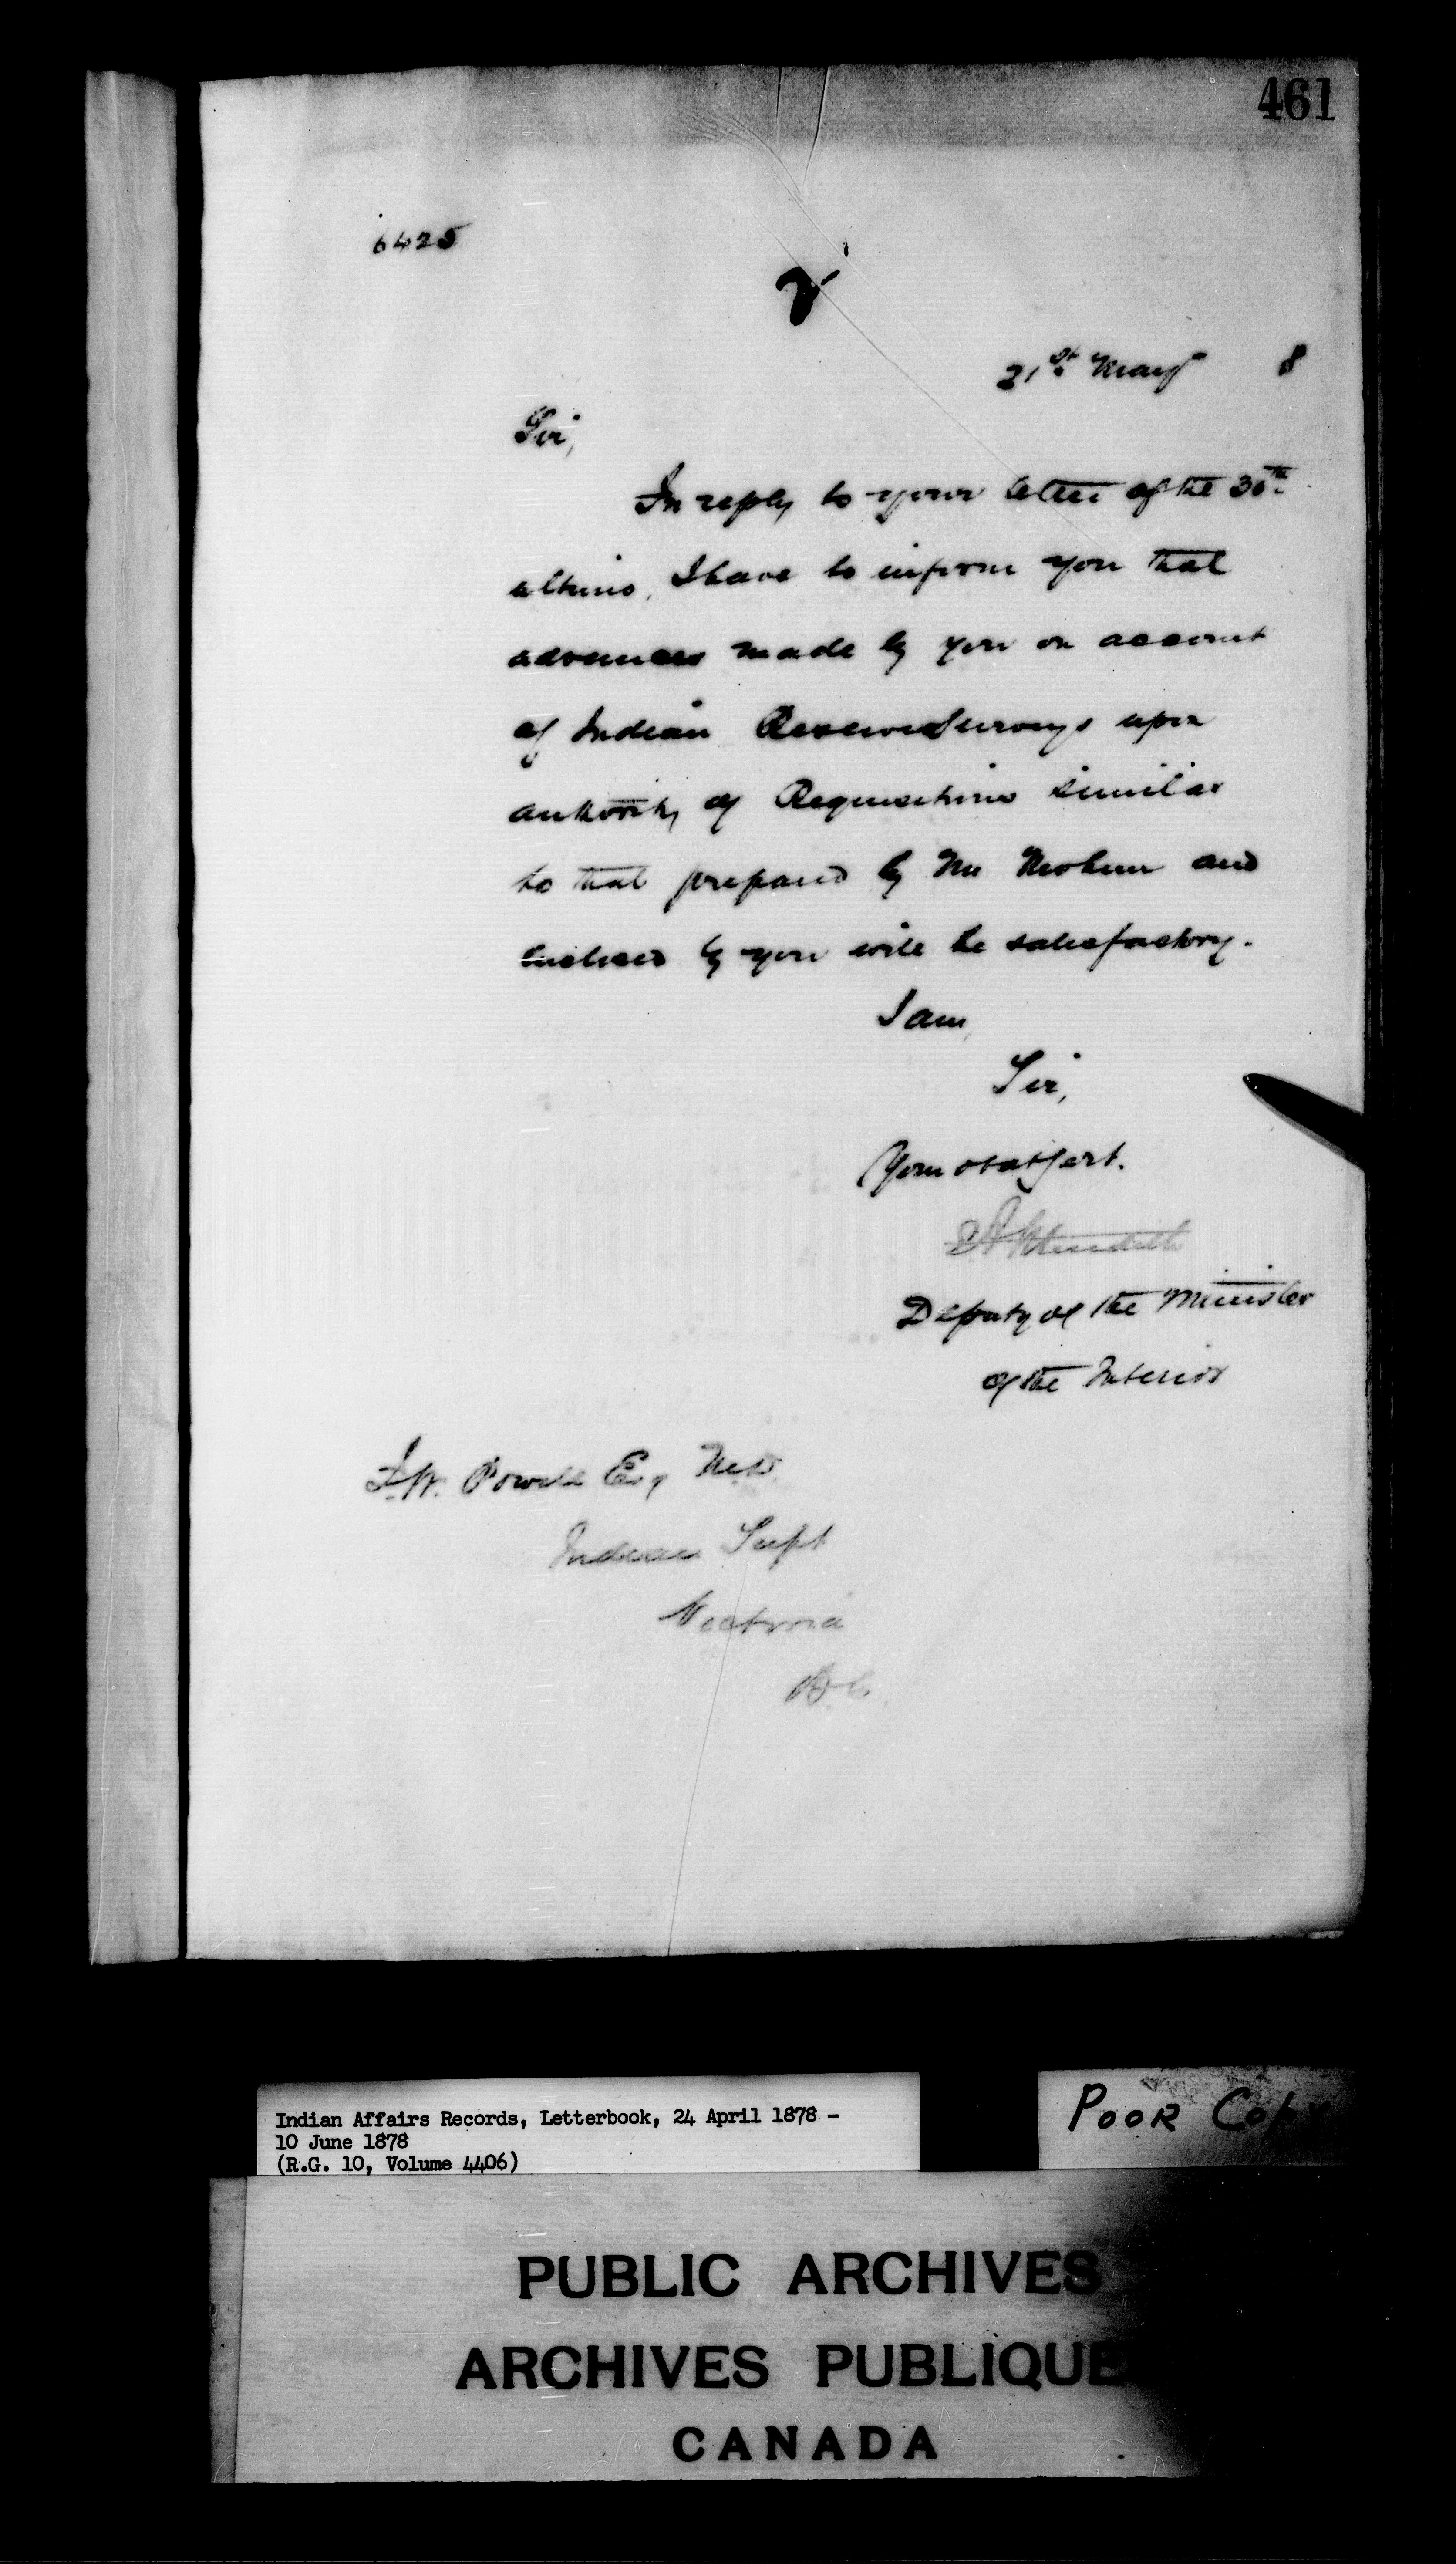 461
6425
21st May 8
Sir,
In reply to your letter of the 30th
ultimo, I have to inform you that
advances made by you on account
of Indian Reserve Surveys upon
authority of Requisitions similar
to that prepared by Mr Mohun and
enclosed by you will be satisfactory.
I am,
Sir,
Your obdt Sert.
Deputy of the Minister
of the Interior
I.W. Powell Esq M.D.
Indian Supt
Victoria
B C
Indian Affairs Records, Letterbook, 24 April 1878 –
10 June 1878
(R.G. 10, Volume 4406)
POOR Copy
PUBLIC ARCHIVES
ARCHIVES PUBLIQUE
CANADA